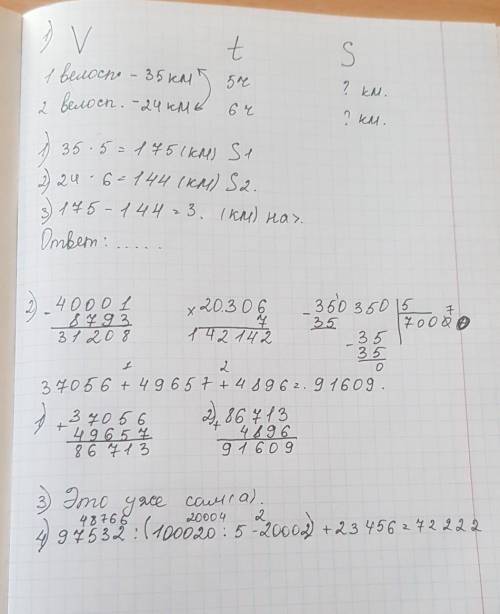 1) V t S
1 велосп. - 35 км 5ч ? км.
2 велосп. - 24 км 6 ч ? км.
1) 35 · 5 = 175 (км) S1
2) 24 · 6 = 144 (км) S2.
3) 175 - 144 = 3. (км) на >.
Ответ: .....
2) - 40001 × 20306 - 350350 | 5
8793 7 35 7000 7
31208 142142 - 35
35
0
1 2
37056 + 49657 + 4896 = 91609.
1) + 37056 2) + 86713
49657 4896
86713 91609
3) Это уже сам(а).
48766 20004 2
4) 97532 : (100020 : 5 - 20002) + 23456 = 72222